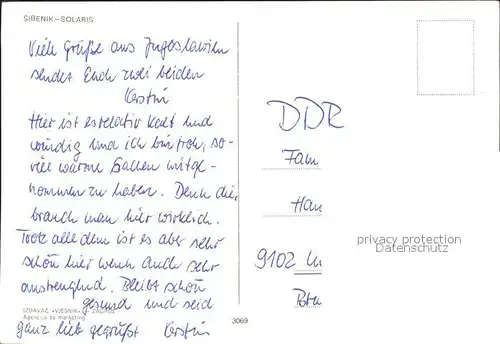 ŠIBENIK – SOLARIS
Viele Grüße aus Jugoslawien
sendet Euch zwei beiden
Kerstin
Hier ist es relativ kalt und
windig und ich bin froh, so-
viel warme Sachen mitge-
nommen zu haben. Denn die
brauch man hier wirklich.
Trotz alle dem ist es aber sehr
schön hier wenn auch sehr
anstrengend. Bleibt schön
gesund und seid
ganz lieb gegrüßt Kerstin
IZDAVAČ »VJESNIK« ZAGREB
Agencija za marketing
3069
DDR
Fam
Han
9102
privacy protection
Datenschutz